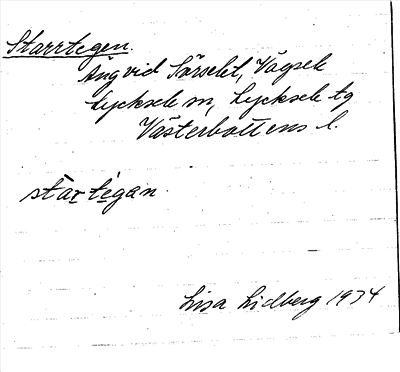 Starrtegen.
Äng vid Sörselet, Vägsele
Lycksele sn, Lycksele tg
Västerbottens l.
startegan.
Lisa Lidberg 1934